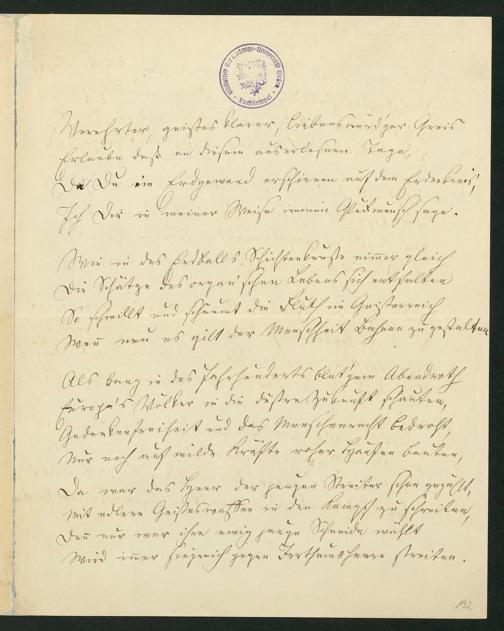 Bibliothek der Ludwigs-Universität Giessen
Verehrter, geistesklarer, liebenswürd'ger Greis
Erlaube daß an diesem auserlesnen Tage,
Da Du im Erdgewand erschienen auf dem Erdenkreis,
Ich Dir in meiner Weise meinen Glückwunsch sage.
Wie in des Erdballs Schichtenkruste nimmer gleich
Die Schätze des organ'schen Lebens sich entfalten
So schwillt und schäumt die Fluth im Geisterreich
Wenn neu es gilt der Menschheit Bahnen zu gestalten
Als bang in des Jahrhunderts blut'gem Abendroth
Europa's Völker in die düstre Zukunft schauten,
Gedankenfreiheit und das Menschenrecht bedroht,
Nur noch auf wilde Kräfte roher Haufen bauten,
Da war das Heer der jungen Streiter schon gezählt,
Mit edleren Geisteswaffen in den Kampf zu schreiten,
Denn nur wer ihre ewig junge Schneide wählt
Wird immer siegreich gegen Irrthumsheere streiten.
192